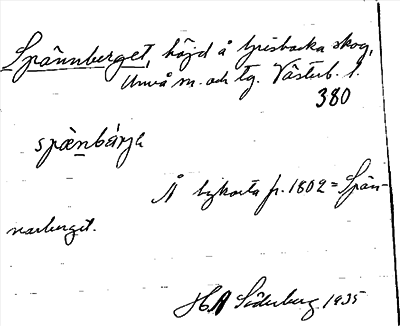 Spännberget, höjd å Grisbacka skog,
Umeå m. och tg. Västerb. l.
380
spänbärje
Å bykarta fr. 1802 = Spän-
narberget.
H A Söderberg 1935